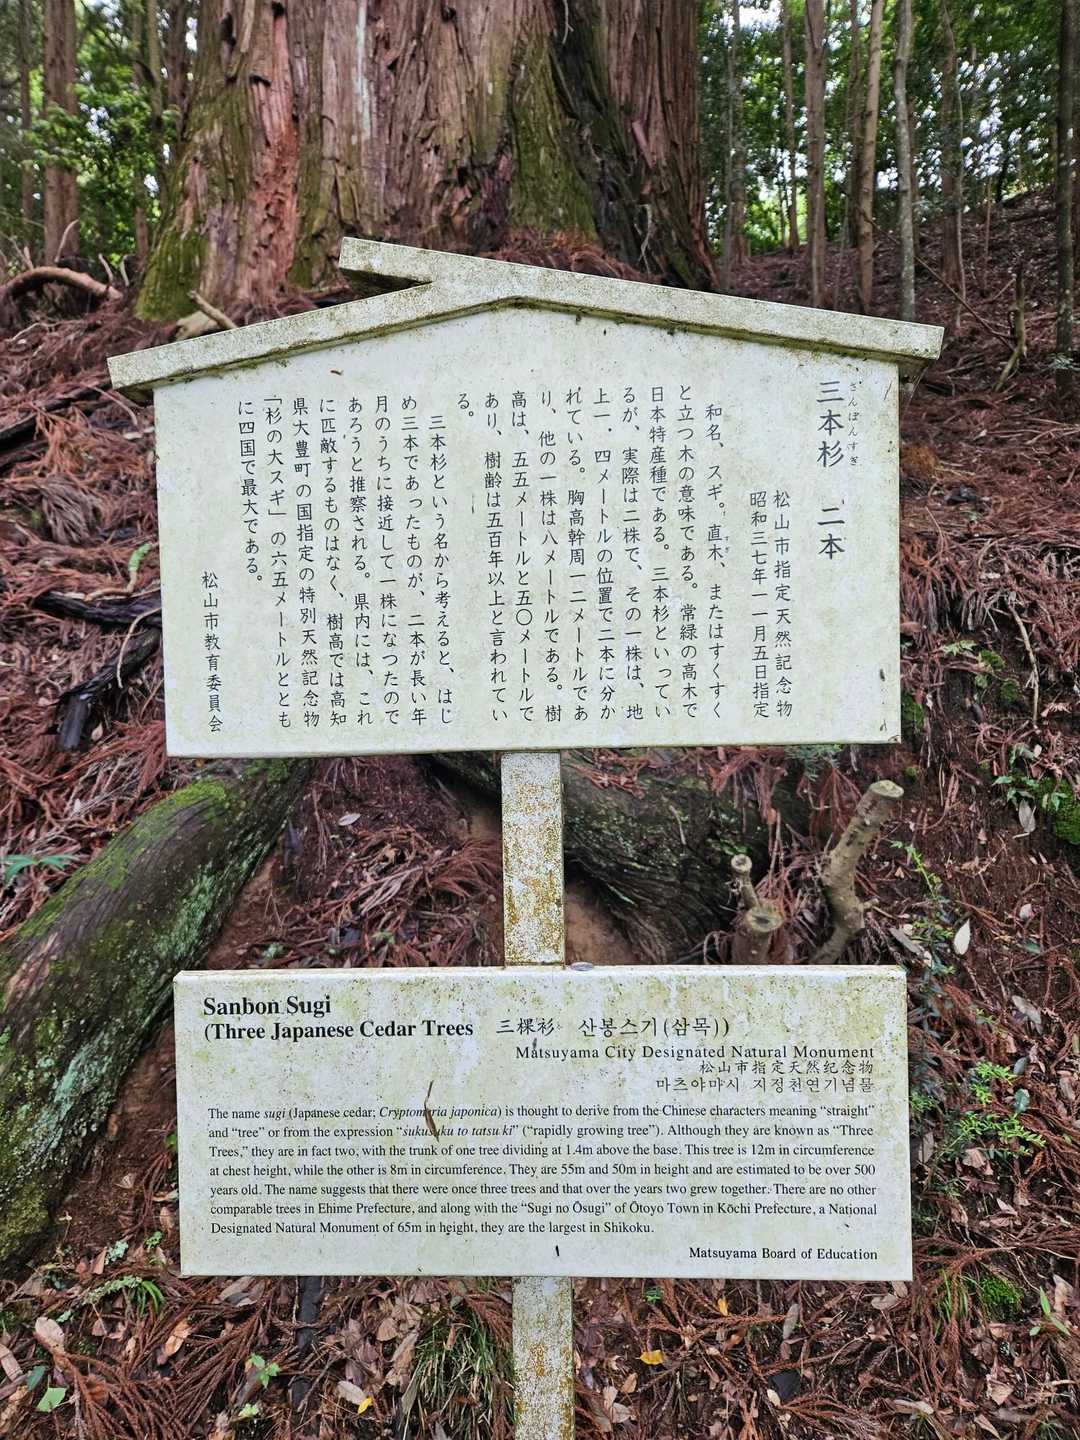 三本杉 二本
さんぼんすぎ
松山市指定天然記念物
昭和三七年一一月五日指定
和名、スギ。直木、またはすくすく
と立つ木の意味である。常緑の高木で
日本特産種である。三本杉といってい
るが、実際は二株で、その一株は、地
上一・四メートルの位置で二本に分か
れている。胸高幹周一二メートルであ
り、他の一株は八メートルである。樹
高は、五五メートルと五〇メートルで
あり、樹齢は五百年以上と言われてい
る。
三本杉という名から考えると、はじ
め三本であったものが、二本が長い年
月のうちに接近して一株になつたので
あろうと推察される。県内には、これ
に匹敵するものはなく、樹高では高知
県大豊町の国指定の特別天然記念物
「杉の大スギ」の六五メートルととも
に四国で最大である。
松山市教育委員会
Sanbon Sugi
(Three Japanese Cedar Trees 三棵衫 산봉스기(삼목))
Matsuyama City Designated Natural Monument
松山市指定天然纪念物
마츠야마시 지정천연기념물
The name sugi (Japanese cedar; Cryptomeria japonica) is thought to derive from the Chinese characters meaning “straight”
and “tree” or from the expression “sukusuku to tatsu ki” (“rapidly growing tree”). Although they are known as “Three
Trees,” they are in fact two, with the trunk of one tree dividing at 1.4m above the base. This tree is 12m in circumference
at chest height, while the other is 8m in circumference. They are 55m and 50m in height and are estimated to be over 500
years old. The name suggests that there were once three trees and that over the years two grew together. There are no other
comparable trees in Ehime Prefecture, and along with the “Sugi no Ōsugi” of Ōtoyo Town in Kōchi Prefecture, a National
Designated Natural Monument of 65m in height, they are the largest in Shikoku.
Matsuyama Board of Education